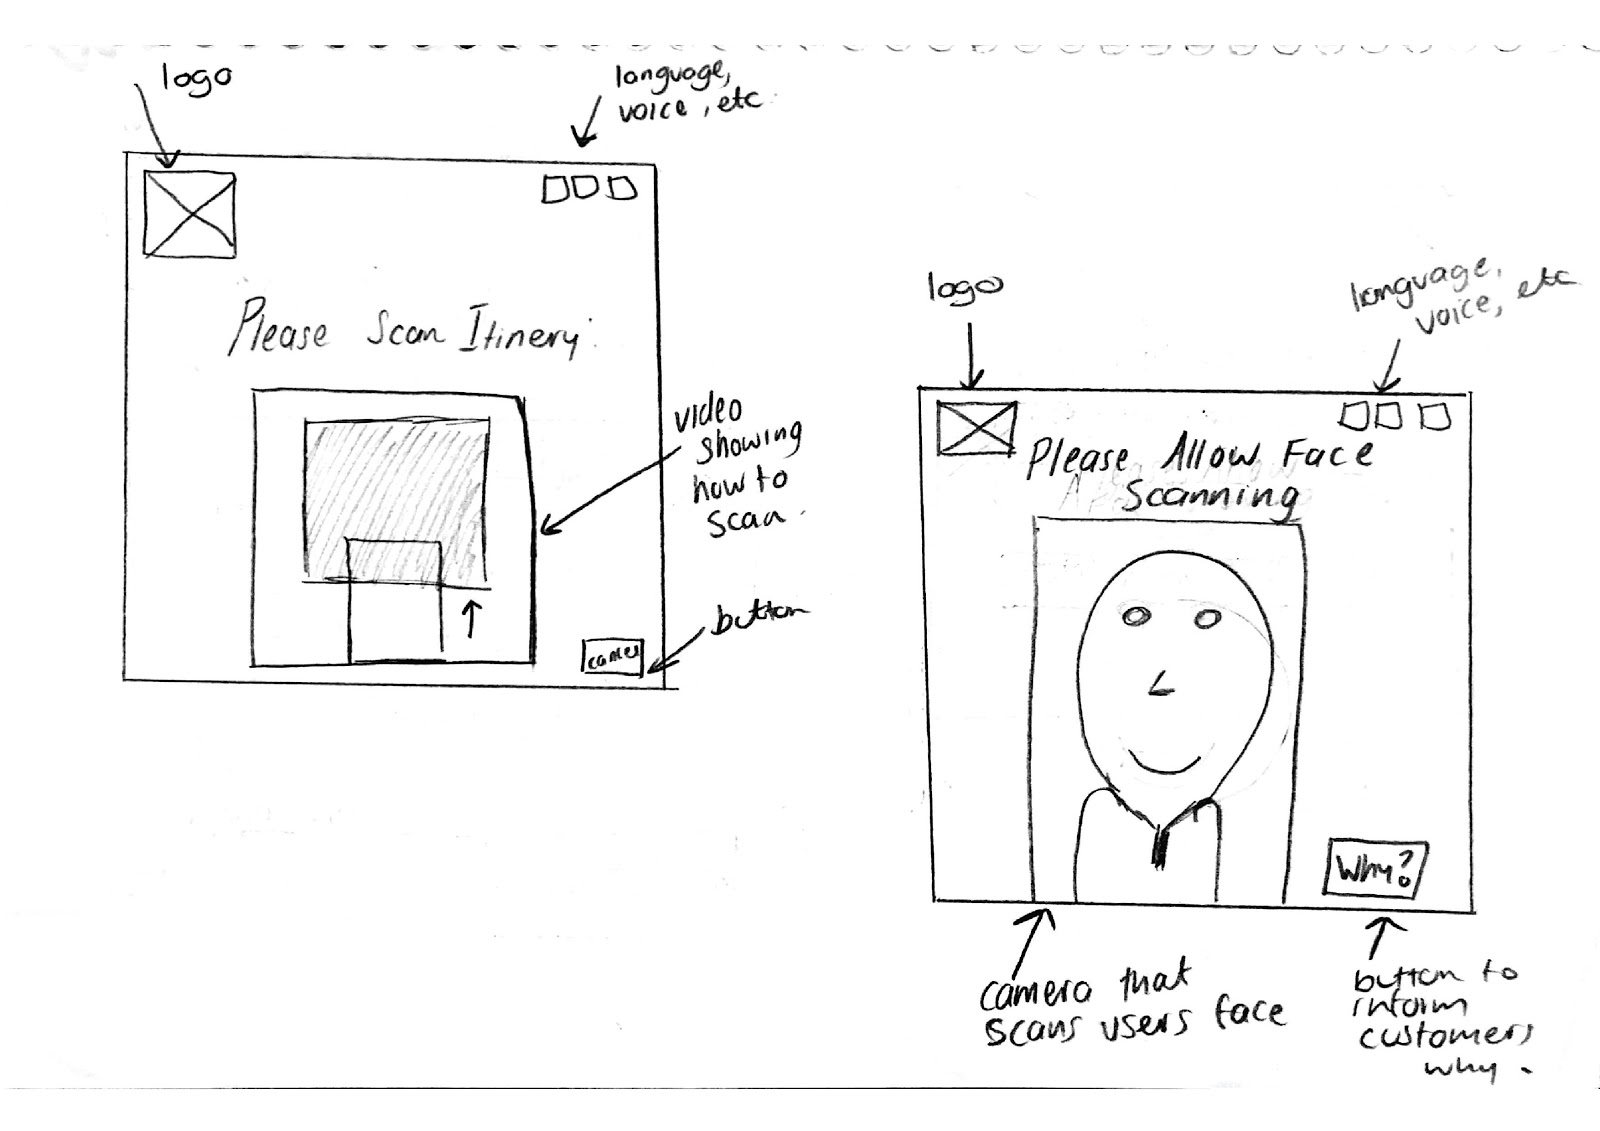 logo
language,
voice, etc.
Please Scan Itinery:
video
showing
how to
scan.
button
cancel
logo
language,
voice, etc
Please Allow Face
Scanning
Why?
camera that
scans users face
button to
inform
customers
why.